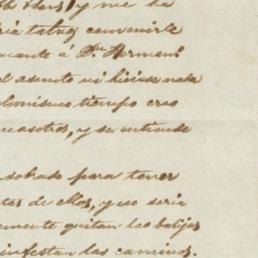 y me ha
ria talvez convenirle
cuanto á Dn. Hermen
el asunto ni hiciese nada
mismo tiempo creo
nosotros, y se entiende
sobrado para tener
tas de ellos, y eso seria
mente quitan las batijas
infestan las caminos.